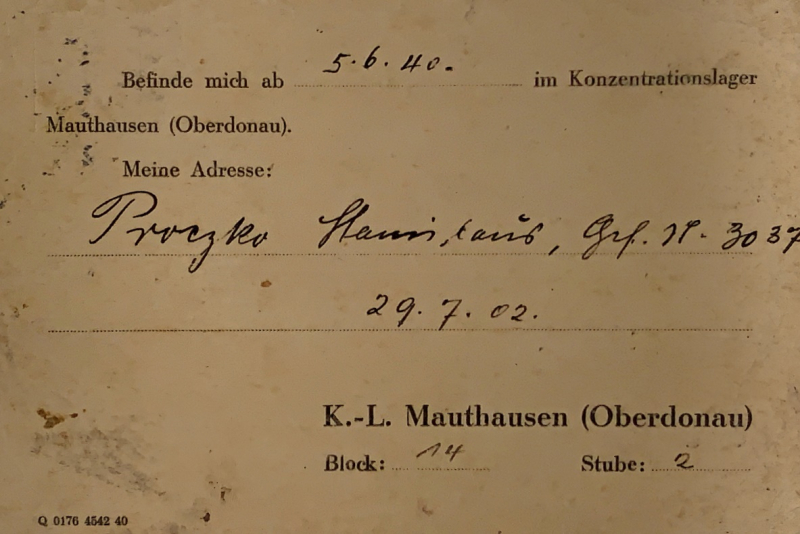 Befinde mich ab 5.6.40. im Konzentrationslager
Mauthausen (Oberdonau).
Meine Adresse:
Proczko Stanislaus, Grf. N. 3037
29.7.02.
K.-L. Mauthausen (Oberdonau)
Block: 14 Stube: 2
Q 0176 4542 40